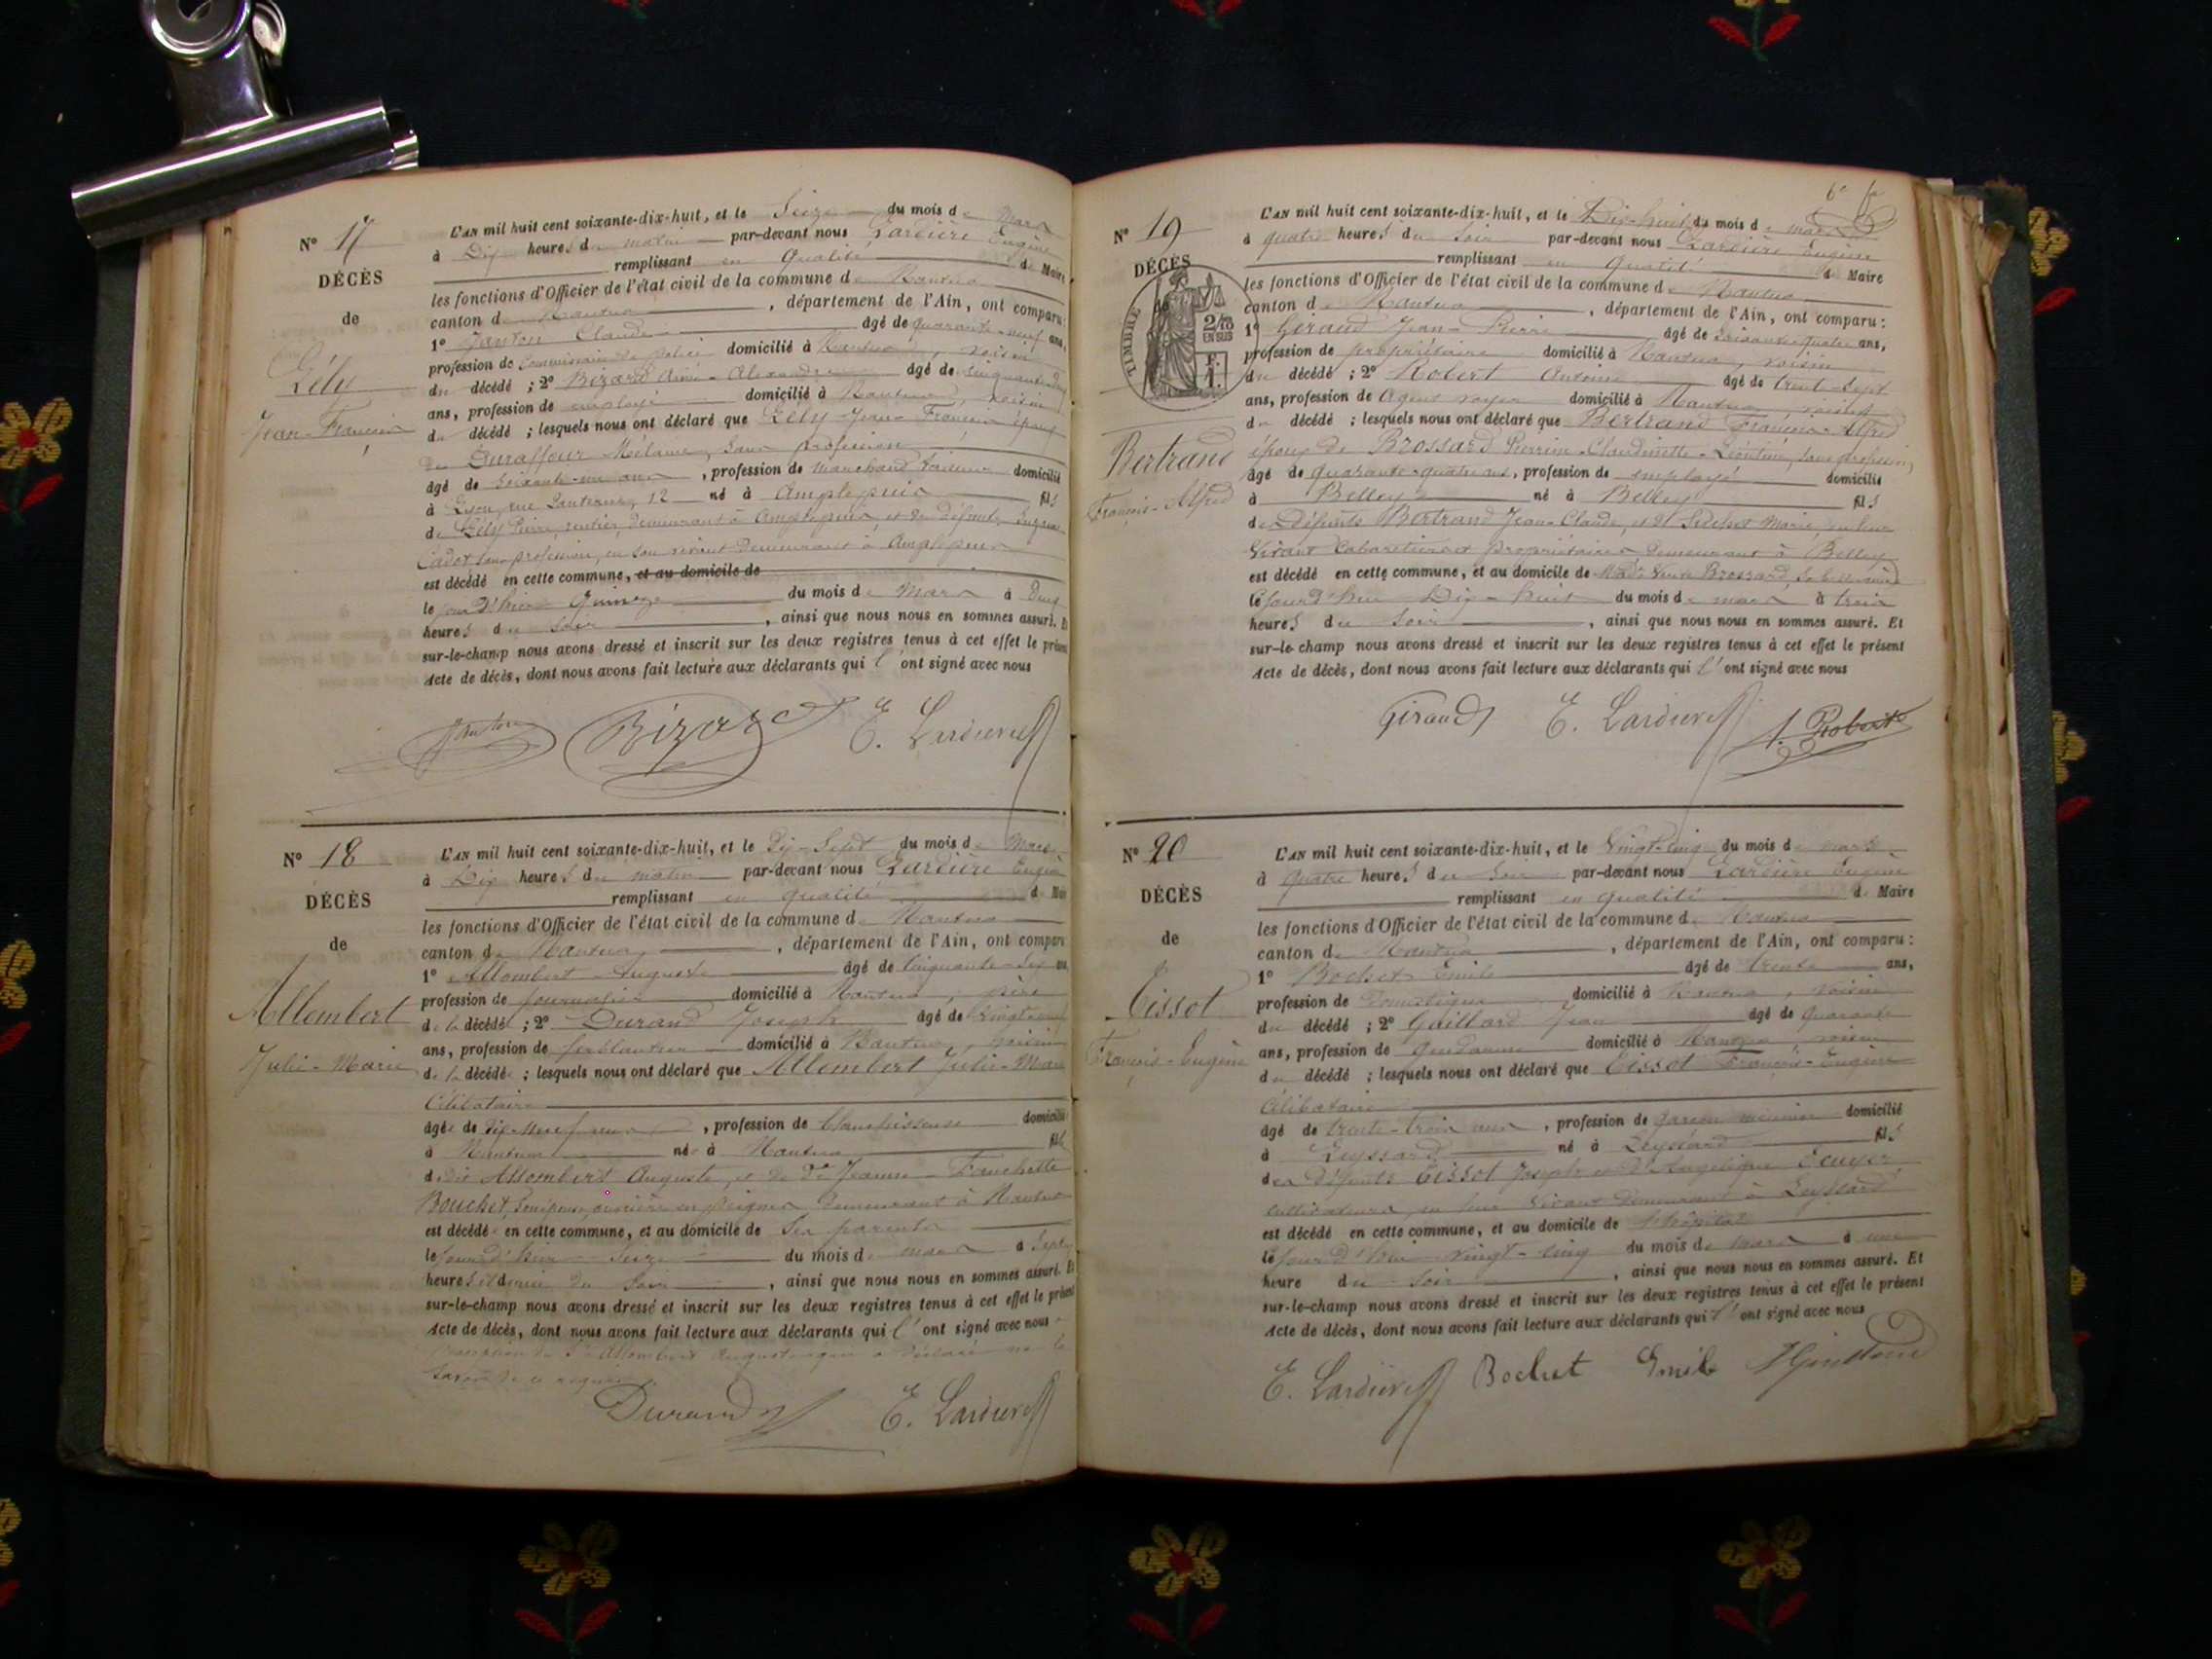 N° 17
DÉCÈS
de
Lély
Jean-François
L'AN mil huit cent soixante-dix-huit, et le Seize du mois de Mars
à Dix heures du matin par-devant nous Lardière Eugène
remplissant en qualité de Maire
les fonctions d'Officier de l'état civil de la commune de Nantua
canton de Nantua, département de l'Ain, ont comparu:
1° Janton Claude âgé de quarante-neuf ans,
profession de Commissaire de police domicilié à Nantua, voisin
du décédé; 2° Bizard Aimé-Alexandre âgé de cinquante
ans, profession de employé domicilié à Nantua, voisin
du décédé; lesquels nous ont déclaré que Lély Jean-François époux
de Duraffour Mélanie, Sans profession
âgé de Soixante-un ans, profession de Marchand domicilié
à Lyon, rue Lanterne, 12 né à Amplepuis fils
de Lély Pierre, rentier, demeurant à Amplepuis, et de défunte
Cadot sans profession, en son vivant demeurant à Amplepuis
est décédé en cette commune, et au domicile de
le jour d'hier Quinze du mois de Mars à Deux
heures du Soir, ainsi que nous nous en sommes assuré. Et
sur-le-champ nous avons dressé et inscrit sur les deux registres tenus à cet effet le présent
Acte de décès, dont nous avons fait lecture aux déclarants qui l'ont signé avec nous
Janton Bizard E. Lardière
N° 18
DÉCÈS
de
Allombert
Julie-Marie
L'AN mil huit cent soixante-dix-huit, et le Dix-Sept du mois de Mars
à Dix heures du matin par-devant nous Lardière Eugène
remplissant en qualité de Maire
les fonctions d'Officier de l'état civil de la commune de Nantua
canton de Nantua, département de l'Ain, ont comparu
1° Allombert Auguste âgé de cinquante-six ans
profession de journalier domicilié à Nantua, père
de la décédée; 2° Durand Joseph âgé de
ans, profession de ferblantier domicilié à Nantua, voisin
de la décédée; lesquels nous ont déclaré que Allombert Julie-Marie
Célibataire
âgée de dix-neuf ans, profession de blanchisseuse domiciliée
à Nantua née à Nantua fille
du dit Allombert Auguste, et de De Jeanne-Fanchette
Bouchet, Son épouse, ouvrière en peignes demeurant à Nantua
est décédée en cette commune, et au domicile de Ses parents
le jour d'hier Seize du mois de mars à Sept
heures et demie du Soir, ainsi que nous nous en sommes assuré. Et
sur-le-champ nous avons dressé et inscrit sur les deux registres tenus à cet effet le présent
Acte de décès, dont nous avons fait lecture aux déclarants qui l'ont signé avec nous
à l'exception de Sr Allombert Auguste qui a déclaré ne le
Savoir de ce requis.
Durand E. Lardière
N° 19
DÉCÈS
TIMBRE
2/10
EN SUS
F.
1.
Bertrand
François-Alfred
L'AN mil huit cent soixante-dix-huit, et le Dix-huit du mois de mars
à quatre heures du Soir par-devant nous Lardière Eugène
remplissant en qualité de Maire
les fonctions d'Officier de l'état civil de la commune de Nantua
canton de Nantua, département de l'Ain, ont comparu:
1° Giraud Jean-Pierre âgé de Soixante-quatre ans,
profession de propriétaire domicilié à Nantua, voisin
du décédé; 2° Robert Antoine âgé de trente-Sept
ans, profession de Agent voyer domicilié à Nantua, voisin
du décédé; lesquels nous ont déclaré que Bertrand François-Alfred
époux de Brossard Perrine-Claudinette-Léontine, Sans profession,
âgé de quarante-quatre ans, profession de employé domicilié
à Belley né à Belley fils
de Défunts Bertrand Jean-Claude, et De Marie, en leur
vivant Cabaretiers et propriétaires demeurant à Belley
est décédé en cette commune, et au domicile de Made Veuve Brossard,
le jour d'hui Dix-huit du mois de mars à trois
heures du Soir, ainsi que nous nous en sommes assuré. Et
sur-le-champ nous avons dressé et inscrit sur les deux registres tenus à cet effet le présent
Acte de décès, dont nous avons fait lecture aux déclarants qui l'ont signé avec nous
Giraud E. Lardière A. Robert
N° 20
DÉCÈS
de
Tissot
François-Eugène
L'AN mil huit cent soixante-dix-huit, et le Vingt-cinq du mois de mars
à quatre heures du Soir par-devant nous Lardière Eugène
remplissant en qualité de Maire
les fonctions d'Officier de l'état civil de la commune de Nantua
canton de Nantua, département de l'Ain, ont comparu:
1° Bochet Emile âgé de trente ans,
profession de Domestique domicilié à Nantua, voisin
du décédé; 2° Guillard Jean âgé de quarante
ans, profession de Gendarme domicilié à Nantua, voisin
du décédé; lesquels nous ont déclaré que Tissot François-Eugène
Célibataire
âgé de trente-trois ans, profession de garçon meunier domicilié
à Leyssard né à Leyssard fils
des Défunts Tissot Joseph et De Angélique Ecuyer
cultivateurs, en leur vivant demeurant à Leyssard
est décédé en cette commune, et au domicile de l'hôpital
le jour d'hui vingt-cinq du mois de mars à une
heure du Soir, ainsi que nous nous en sommes assuré. Et
sur-le-champ nous avons dressé et inscrit sur les deux registres tenus à cet effet le présent
Acte de décès, dont nous avons fait lecture aux déclarants qui l'ont signé avec nous
E. Lardière Bochet Emile